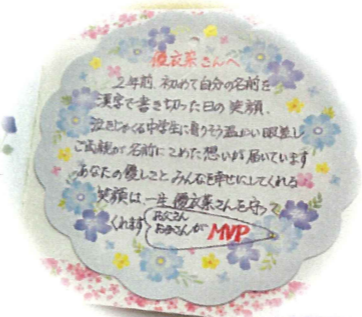 優衣菜さんへ
2年前、初めて自分の名前を
漢字で書き切った日の笑顔、
泣きじゃくる中学生に寄りそう温かい眼差し
ご両親が名前にこめた想いが届いています
あなたの優しさと みんなを幸せにしてくれる
笑顔は、一生 優衣菜さんを守って
くれます
お父さん
お母さんが MVP